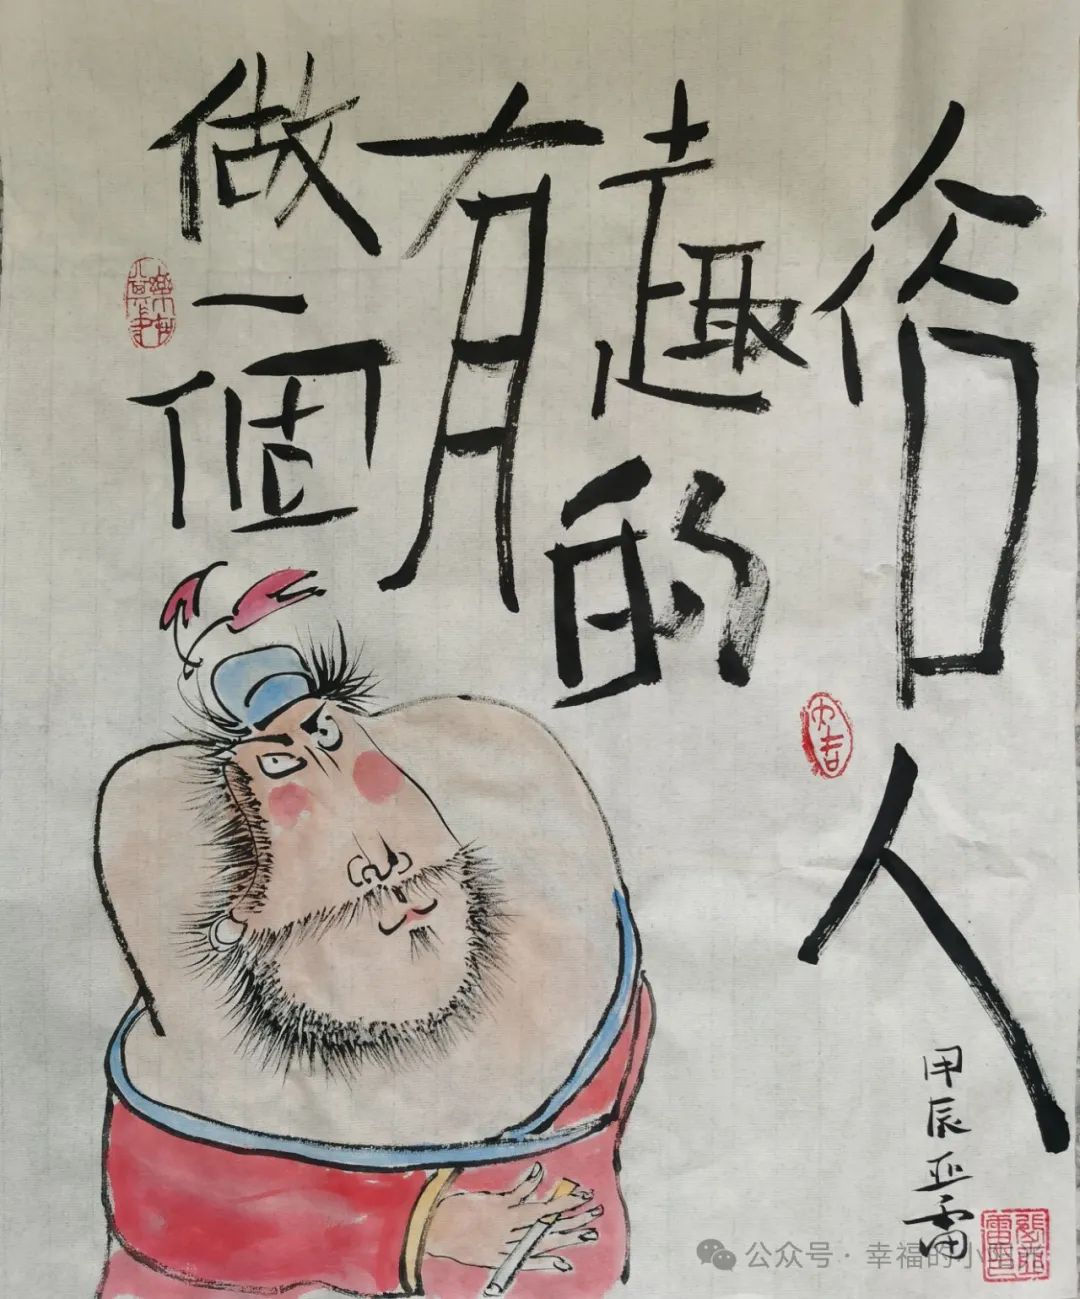 做一個
有
趣的
俗人
甲辰亚雷
大吉
公众号 · 幸福的小